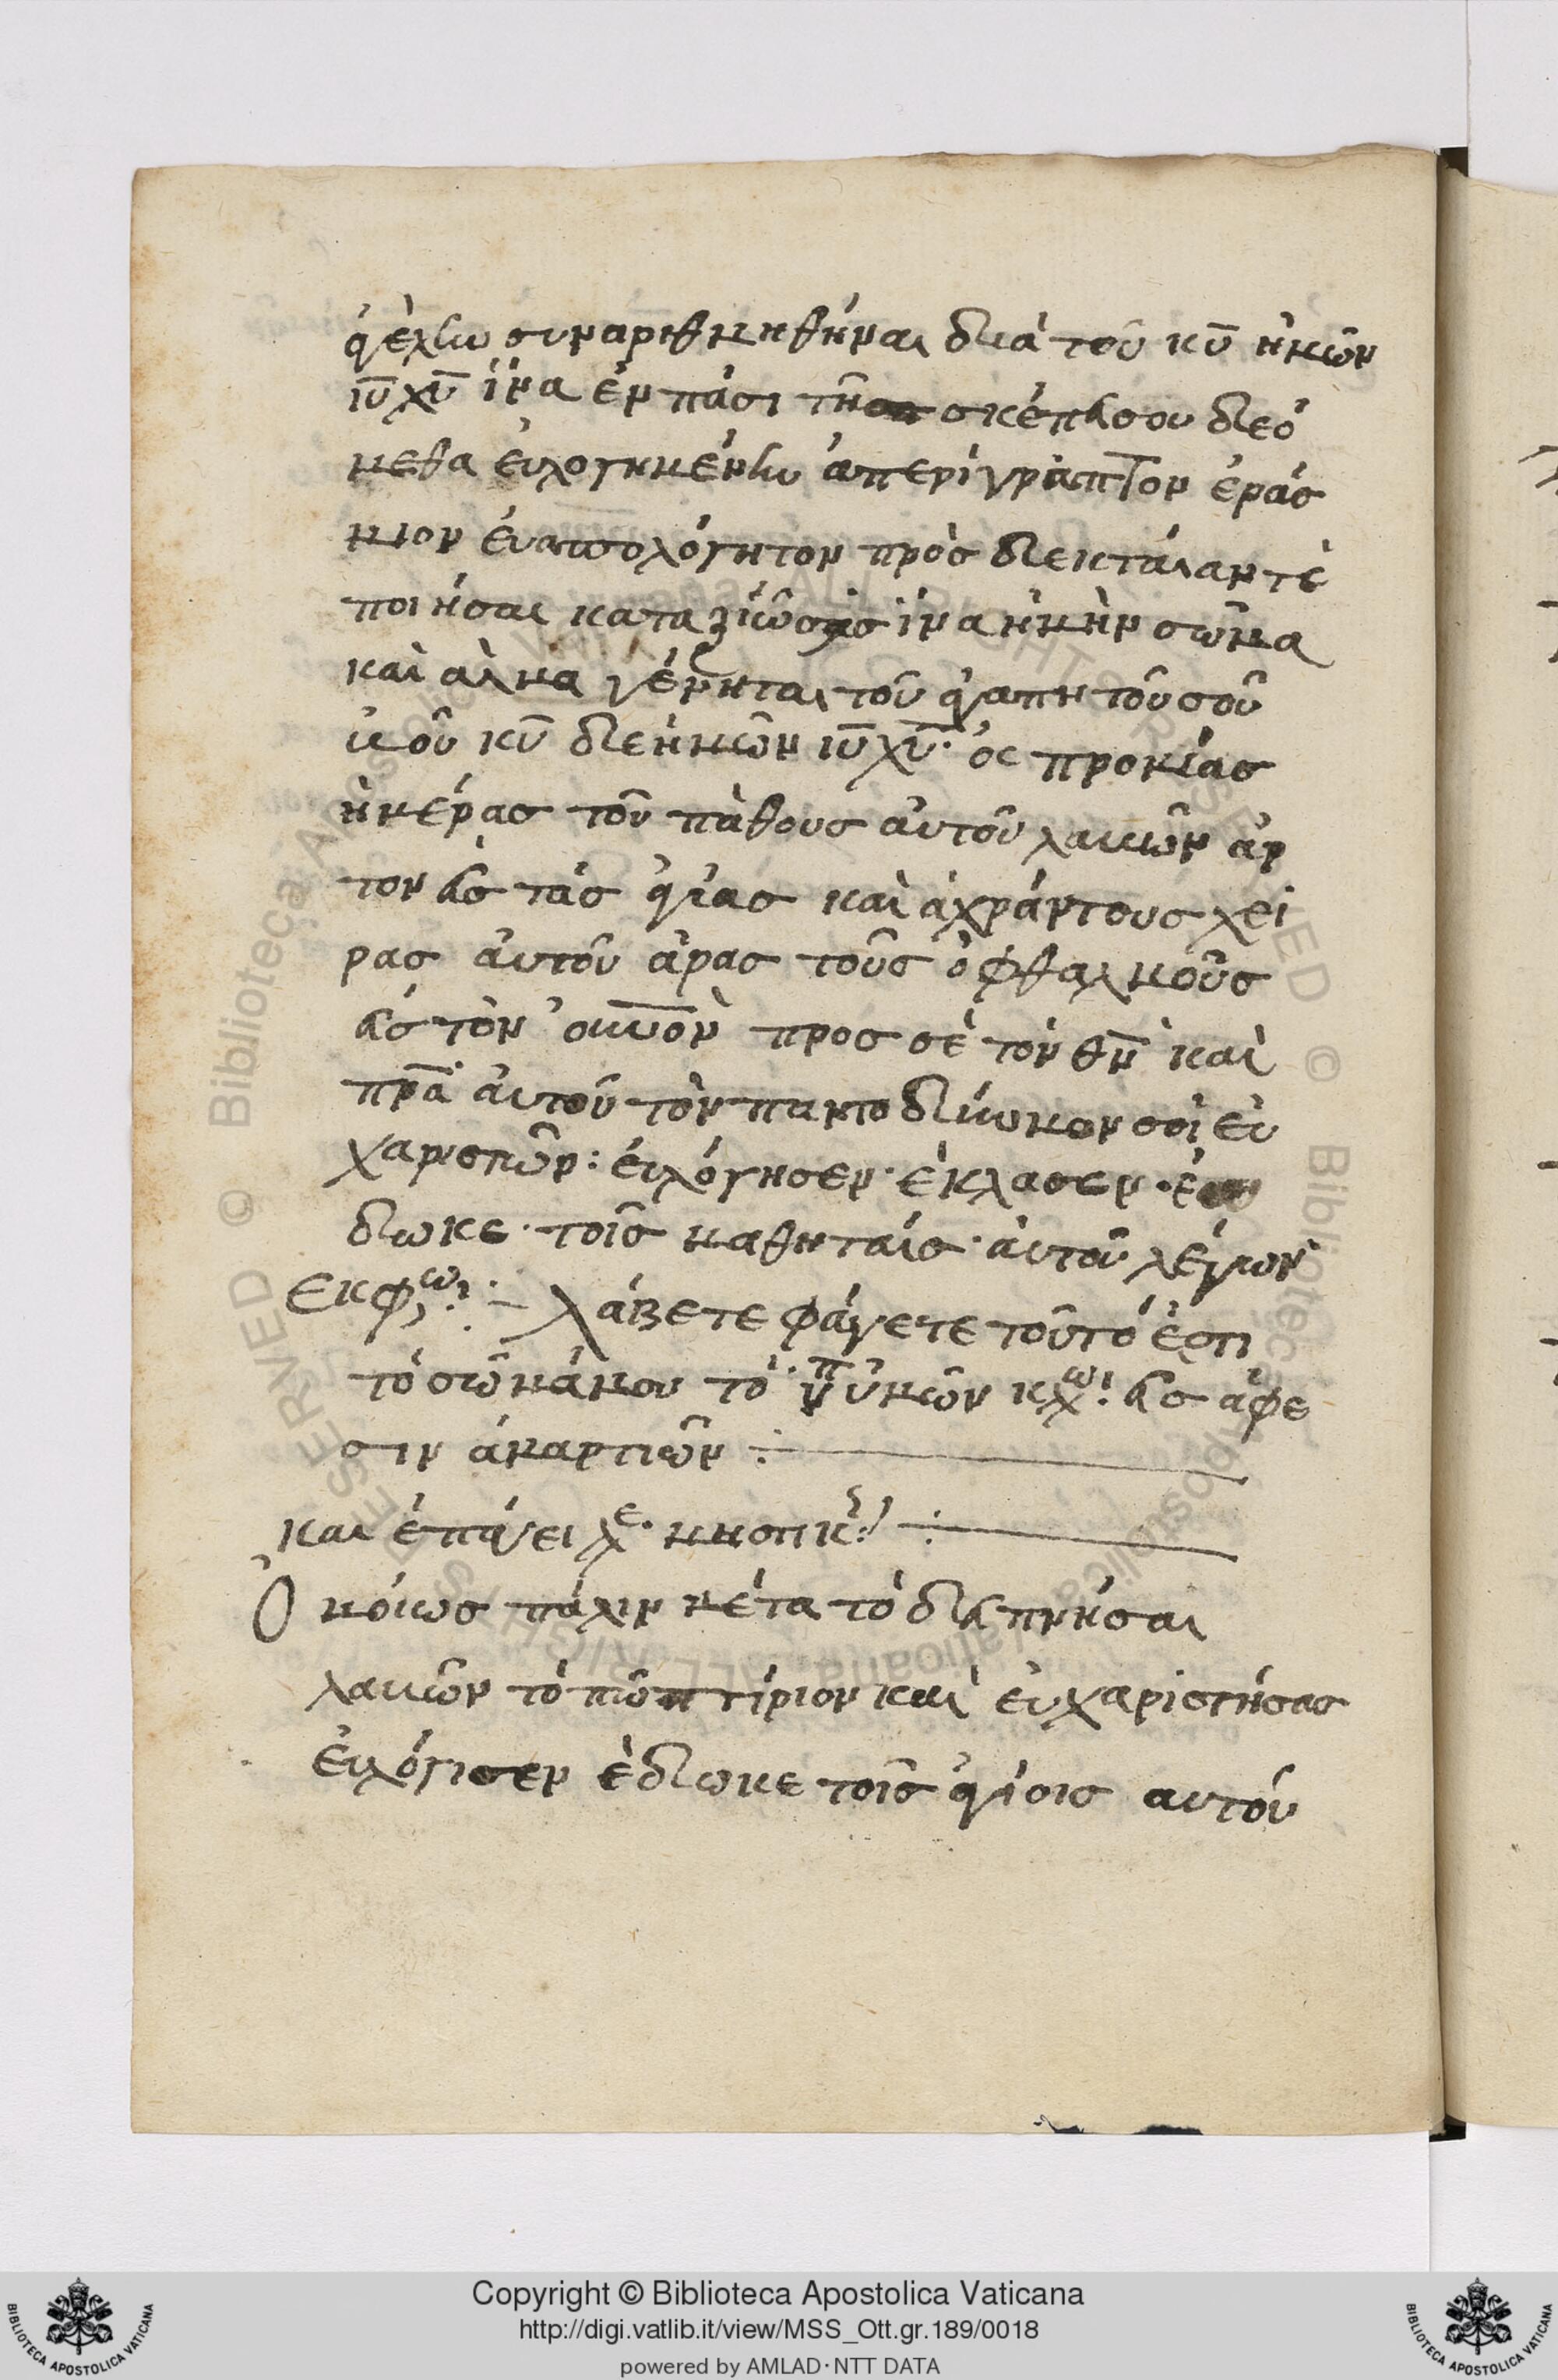 ἀγέλην συναριθμηθήναι διὰ τοῦ κ̅υ̅ ἡμῶν
ι̅υ̅ χ̅υ̅ ἵνα ἐν πάσι τῆ σκέπεισου δεό
μεθα ἐυλογημένην ἀπερίγραπτον ἐράσ
μιον ἐυαπολόγητον πρὸσ δεκταίαν τὲ
ποιήσαι καταξιῶσ ἵνα ἡμὴν σῶμα
καὶ αἷμα γένηται τοῦ ἀγαπητοῦ σοῦ
ὑιοῦ κ̅υ̅ δὲ ἡμῶν ι̅υ̅ χ̅υ̅· ὁς προμιάσ
ἡμέρασ τοῦ πάθουσ ἀυτοῦ λαβῶν ἄρ
τον εἰσ τάσ ἁγίασ καὶ ἀχράντουσ χεῖ
ρασ ἀυτοῦ ἄρασ τοῦσ ὀφθαλμοῦσ
εἰσ τὸν ὀυνον προσ σὲ τὸν θ̅ν̅ καὶ
π̅ρ̅α̅ ἀυτοῦ τὸν παντοδύναμον σοὶ ἐυ
χαριστῶν: ἐυλόγησεν· ἔκλασεν· ἐ
δωκε· τοῖσ μαθηταίσ· ἀυτοῦ λέγων
εκφω:— λάβετε φάγετε τοῦτό ἐστι
τὸ σῶμά μου τὸ ὑπ ὑμῶν κχω: εἰσ ἄφε
σιν ἁμαρτιῶν :—
και ἐπάγει χε· μησπικ :—
Ὁμόιωσ πάλιν μέτα τὸ δειπνήσαι
λαβῶν τὸ πωτίριον καὶ ἐυχαριστήσασ
ἐυλόγισεν ἔδωκε τοῖσ ἁγίοισ αυτόυ
Copyright © Biblioteca Apostolica Vaticana
http://digi.vatlib.it/view/MSS_Ott.gr.189/0018
powered by AMLAD·NTT DATA
BIBLIOTECA APOSTOLICA VATICANA
BIBLIOTECA APOSTOLICA VATICANA